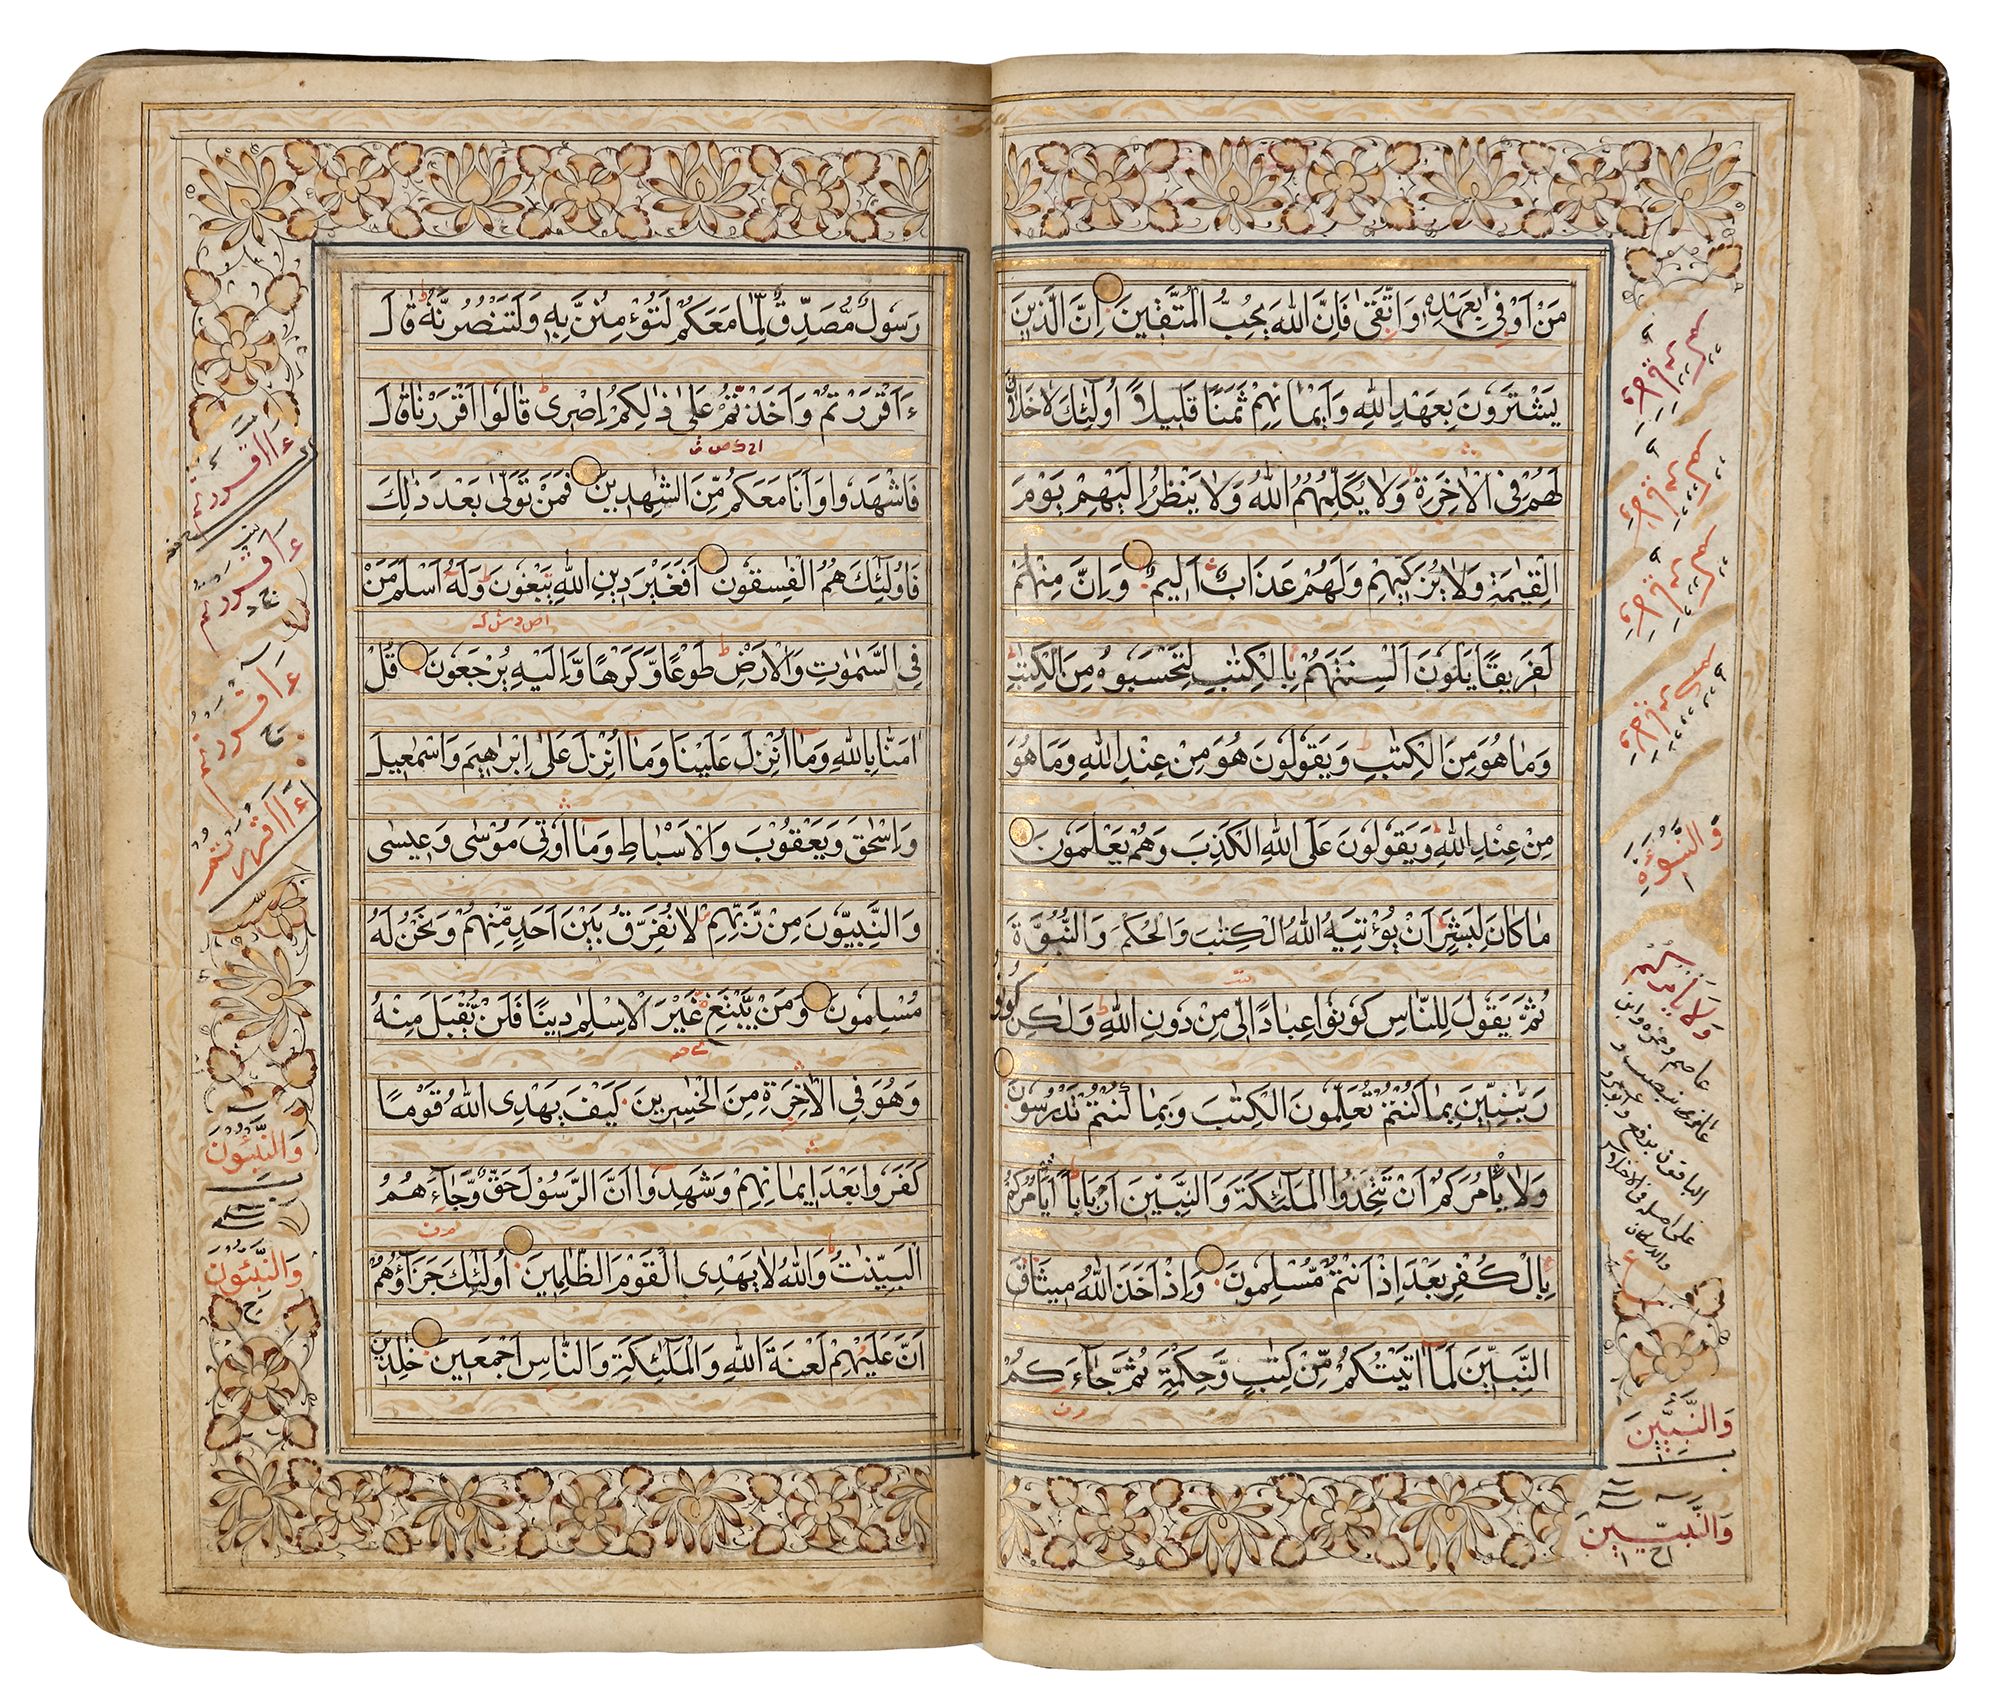 مَنْ اَوْفٰى بِعَهْدِهٖ وَاتَّقٰى فَاِنَّ اللّٰهَ يُحِبُّ الْمُتَّقِينَ اِنَّ الَّذِينَ
يَشْتَرُونَ بِعَهْدِ اللّٰهِ وَاَيْمَانِهِمْ ثَمَنًا قَلِيلًا اُولٰئِكَ لَا خَلَاقَ
لَهُمْ فِى الْاٰخِرَةِ وَلَا يُكَلِّمُهُمُ اللّٰهُ وَلَا يَنْظُرُ اِلَيْهِمْ يَوْمَ
الْقِيٰمَةِ وَلَا يُزَكِّيهِمْ وَلَهُمْ عَذَابٌ اَلِيمٌ وَاِنَّ مِنْهُمْ
لَفَرِيقًا يَلْوٗنَ اَلْسِنَتَهُمْ بِالْكِتٰبِ لِتَحْسَبُوهُ مِنَ الْكِتٰبِ
وَمَا هُوَ مِنَ الْكِتٰبِ وَيَقُولُونَ هُوَ مِنْ عِنْدِ اللّٰهِ وَمَا هُوَ
مِنْ عِنْدِ اللّٰهِ وَيَقُولُونَ عَلَى اللّٰهِ الْكَذِبَ وَهُمْ يَعْلَمُونَ
مَا كَانَ لِبَشَرٍ اَنْ يُؤْتِيَهُ اللّٰهُ الْكِتٰبَ وَالْحُكْمَ وَالنُّبُوَّةَ
ثُمَّ يَقُولَ لِلنَّاسِ كُونُوا عِبَادًا لِى مِنْ دُونِ اللّٰهِ وَلٰكِنْ كُونُوا
رَبَّانِيّٖنَ بِمَا كُنْتُمْ تُعَلِّمُونَ الْكِتٰبَ وَبِمَا كُنْتُمْ تَدْرُسُونَ
وَلَا يَأْمُرَكُمْ اَنْ تَتَّخِذُوا الْمَلٰئِكَةَ وَالنَّبِيّٖنَ اَرْبَابًا اَيَأْمُرُكُمْ
بِالْكُفْرِ بَعْدَ اِذْ اَنْتُمْ مُسْلِمُونَ وَاِذْ اَخَذَ اللّٰهُ مِيثَاقَ
النَّبِيّٖنَ لَمَا اٰتَيْتُكُمْ مِنْ كِتٰبٍ وَحِكْمَةٍ ثُمَّ جَاءَكُمْ
وَالنُّبُوْءَةَ
وَلَا يَأْمُرَكُمْ
عاصم وحمزه وابن
عامر بنصب و
الباقون برفع وابوعمرو
على اصله فى الاختلاس
والاسكان
وَالنَّبِيّٖنَ
وَالنَّبِيّٖنَ
رَسُولٌ مُصَدِّقٌ لِمَا مَعَكُمْ لَتُؤْمِنُنَّ بِهٖ وَلَتَنْصُرُنَّهُ قَالَ
ءَاَقْرَرْتُمْ وَاَخَذْتُمْ عَلٰى ذٰلِكُمْ اِصْرِى قَالُوا اَقْرَرْنَا قَالَ
فَاشْهَدُوا وَاَنَا مَعَكُمْ مِنَ الشّٰهِدِينَ فَمَنْ تَوَلّٰى بَعْدَ ذٰلِكَ
فَاُولٰئِكَ هُمُ الْفٰسِقُونَ اَفَغَيْرَ دِينِ اللّٰهِ يَبْغُونَ وَلَهُ اَسْلَمَ مَنْ
فِى السَّمٰوٰتِ وَالْاَرْضِ طَوْعًا وَكَرْهًا وَاِلَيْهِ يُرْجَعُونَ قُلْ
اٰمَنَّا بِاللّٰهِ وَمَا اُنْزِلَ عَلَيْنَا وَمَا اُنْزِلَ عَلٰى اِبْرٰهِيمَ وَاِسْمٰعِيلَ
وَاِسْحٰقَ وَيَعْقُوبَ وَالْاَسْبَاطِ وَمَا اُوتِىَ مُوسٰى وَعِيسٰى
وَالنَّبِيُّونَ مِنْ رَبِّهِمْ لَا نُفَرِّقُ بَيْنَ اَحَدٍ مِنْهُمْ وَنَحْنُ لَهُ
مُسْلِمُونَ وَمَنْ يَبْتَغِ غَيْرَ الْاِسْلٰمِ دِينًا فَلَنْ يُقْبَلَ مِنْهُ
وَهُوَ فِى الْاٰخِرَةِ مِنَ الْخٰسِرِينَ كَيْفَ يَهْدِى اللّٰهُ قَوْمًا
كَفَرُوا بَعْدَ اِيمَانِهِمْ وَشَهِدُوا اَنَّ الرَّسُولَ حَقٌّ وَجَاءَهُمُ
الْبَيِّنٰتُ وَاللّٰهُ لَا يَهْدِى الْقَوْمَ الظّٰلِمِينَ اُولٰئِكَ جَزَاؤُهُمْ
اَنَّ عَلَيْهِمْ لَعْنَةَ اللّٰهِ وَالْمَلٰئِكَةِ وَالنَّاسِ اَجْمَعِينَ خٰلِدِينَ
ءَااَقْرَرْتُمْ
ءَاَقْرَرْتُمْ
ءَاَقْرَرْتُمْ
ءَااَقْرَرْتُمْ
وَالنَّبِيْئُونَ
وَالنَّبِيْئُونَ